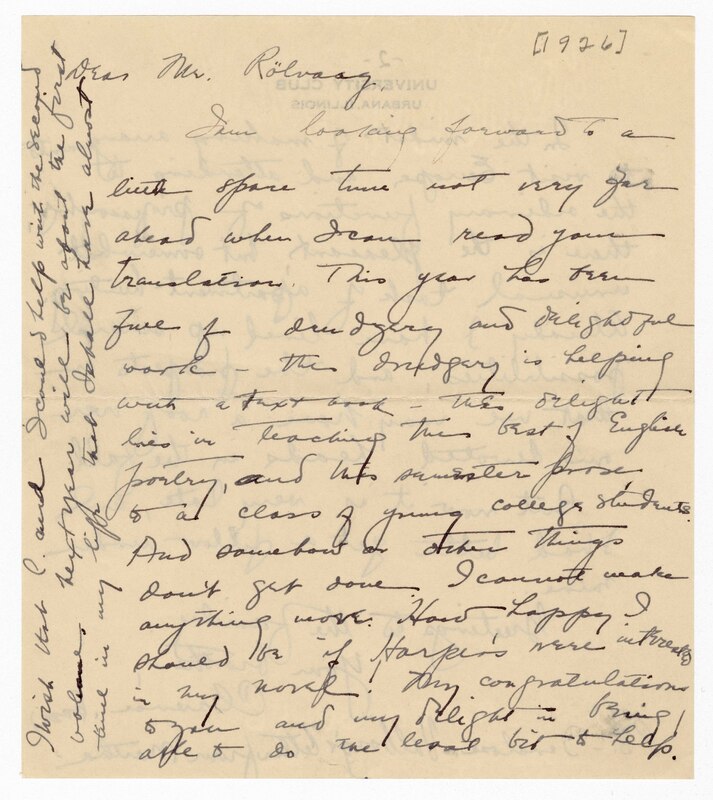 [1926]
Dear Mr. Rölvaag,
I am looking forward to a
little spare time not very far
ahead when I can read your
translation. This year has been
full of drudgery and delightful
work – the drudgery is helping
with a text book – the delight
lies in teaching the best of English
poetry, and this semester prose
to a class of young college students.
And somehow or other things
don't get done. I cannot make
anything move. How happy I
should be if Harpers were interested
in my novel! My congratulations
to you and my delight in being
able to do the least bit to help.
I wish that I could help with the second
volume. Next year will be about the first
time in my life that I shall have almost
-2-
UNIVERSITY CLUB
URBANA, ILLINOIS